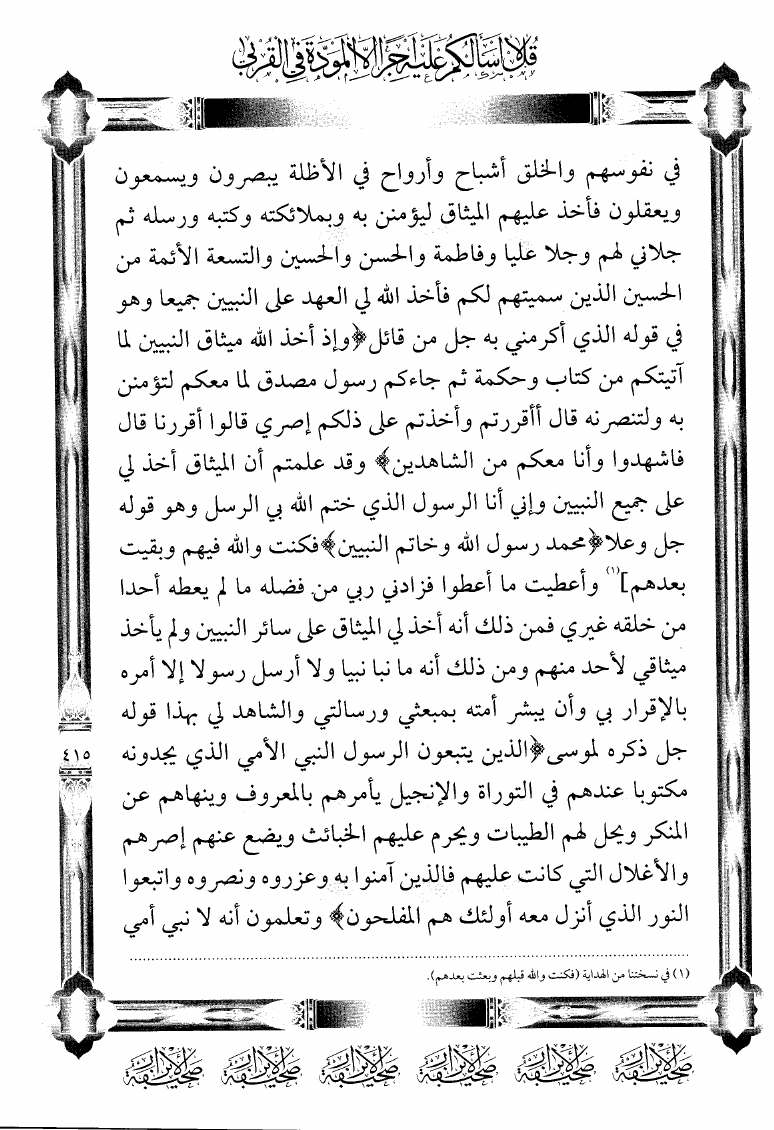 قل لا أسألكم عليه أجرا إلا المودة في القربى
في نفوسهم والخلق أشباح وأرواح في الأظلة يبصرون ويسمعون
ويعقلون فأخذ عليهم الميثاق ليؤمنن به وبملائكته وكتبه ورسله ثم
جلاني لهم وجلا عليا وفاطمة والحسن والحسين والتسعة الأئمة من
الحسين الذين سميتهم لكم فأخذ الله لي العهد على النبيين جميعا وهو
في قوله الذي أكرمني به جل من قائل﴿وإذ أخذ الله ميثاق النبيين لما
آتيتكم من كتاب وحكمة ثم جاءكم رسول مصدق لما معكم لتؤمنن
به ولتنصرنه قال أأقررتم وأخذتم على ذلكم إصري قالوا أقررنا قال
فاشهدوا وأنا معكم من الشاهدين﴾ وقد علمتم أن الميثاق أخذ لي
على جميع النبيين وإني أنا الرسول الذي ختم الله بي الرسل وهو قوله
جل وعلا﴿محمد رسول الله وخاتم النبيين﴾فكنت والله فيهم وبقيت
بعدهم](١) وأعطيت ما أعطوا فزادني ربي من فضله ما لم يعطه أحدا
من خلقه غيري فمن ذلك أنه أخذ لي الميثاق على سائر النبيين ولم يأخذ
ميثاقي لأحد منهم ومن ذلك أنه ما نبا نبيا ولا أرسل رسولا إلا أمره
بالإقرار بي وأن يبشر أمته بمبعثي ورسالتي والشاهد لي بهذا قوله
جل ذكره لموسى﴿الذين يتبعون الرسول النبي الأمي الذي يجدونه
مكتوبا عندهم في التوراة والإنجيل يأمرهم بالمعروف وينهاهم عن
المنكر ويحل لهم الطيبات ويحرم عليهم الخبائث ويضع عنهم إصرهم
والأغلال التي كانت عليهم فالذين آمنوا به وعزروه ونصروه واتبعوا
النور الذي أنزل معه أولئك هم المفلحون﴾ وتعلمون أنه لا نبي أمي
٤١٥
(١) في نسختنا من الهداية (فكنت والله قبلهم وبعثت بعدهم).
صحيفة الأبرار صحيفة الأبرار صحيفة الأبرار صحيفة الأبرار صحيفة الأبرار صحيفة الأبرار